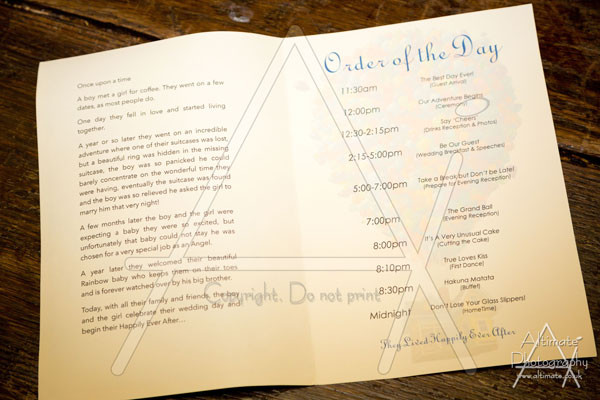 Once upon a time
A boy met a girl for coffee. They went on a few
dates, as most people do.
One day they fell in love and started living
together.
A year or so later they went on an incredible
adventure where one of their suitcases was lost,
but a beautiful ring was hidden in the missing
suitcase, the boy was so panicked he could
barely concentrate on the wonderful time they
were having, eventually the suitcase was found
and the boy was so relieved he asked the girl to
marry him that very night!
A few months later the boy and the girl were
expecting a baby they were so excited, but
unfortunately that baby could not stay he was
chosen for a very special job as an Angel.
A year later they welcomed their beautiful
Rainbow baby who keeps them on their toes
and is forever watched over by his big brother.
Today, with all their family and friends, the boy
and the girl celebrate their wedding day and
begin their Happily Ever After...
Order of the Day
11:30am
The Best Day Ever!
(Guest Arrival)
12:00pm
Our Adventure Begins
(Ceremony)
12:30-2:15pm
Say 'Cheers'
(Drinks Reception & Photos)
2:15-5:00pm
Be Our Guest
(Wedding Breakfast & Speeches)
5:00-7:00pm
Take a Break but Don't be Late!
(Prepare for Evening Reception)
7:00pm
The Grand Ball
(Evening Reception)
8:00pm
It's A Very Unusual Cake
(Cutting the Cake)
8:10pm
True Loves Kiss
(First Dance)
8:30pm
Hakuna Matata
(Buffet)
Midnight
Don't Lose Your Glass Slippers!
(HomeTime)
They Lived Happily Ever After
Copyright. Do not print
Altimate
Photography
www.altimate.co.uk